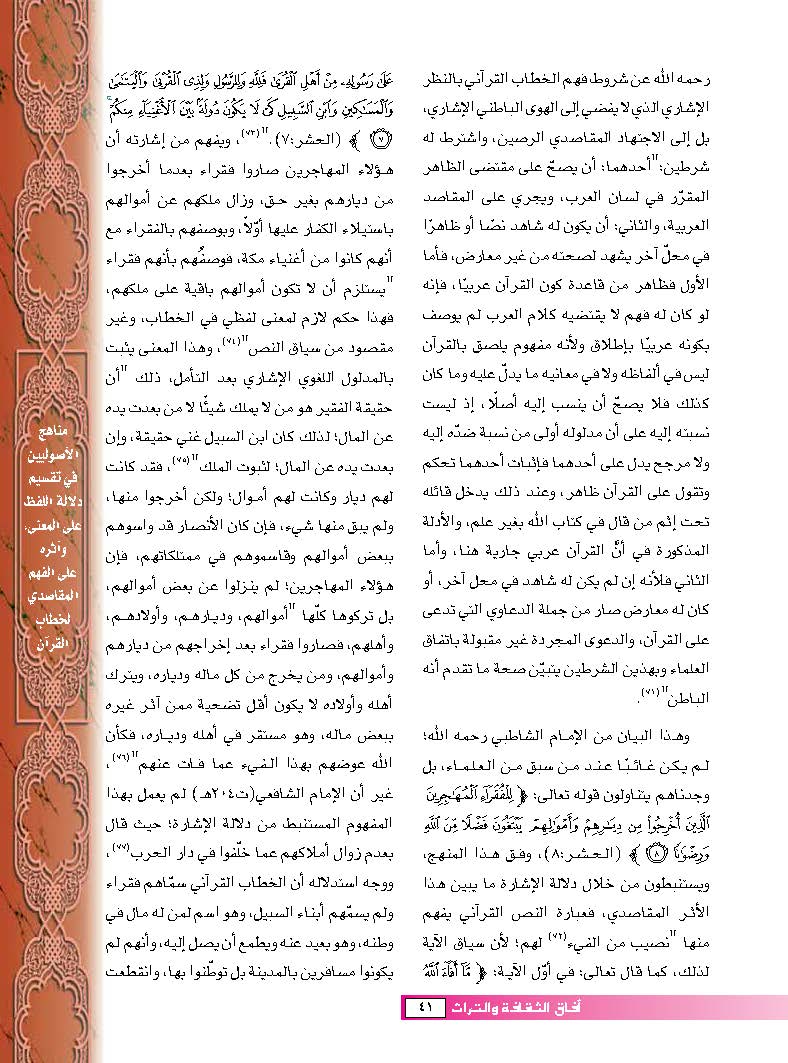 رحمه الله عن شروط فهم الخطاب القرآني بالنظر
الإشاري الذي لا يفضي إلى الهوى الباطني الإشاري،
بل إلى الاجتهاد المقاصدي الرصين، واشترط له
شرطين: "أحدهما: أن يصحّ على مقتضى الظاهر
المقرّر في لسان العرب، ويجري على المقاصد
العربية، والثاني: أن يكون له شاهد نصّا أو ظاهرًا
في محلّ آخر يشهد لصحته من غير معارض، فأما
الأول فظاهر من قاعدة كون القرآن عربيّا، فإنه
لو كان له فهم لا يقتضيه كلام العرب لم يوصف
بكونه عربيّا بإطلاق ولأنه مفهوم يلصق بالقرآن
ليس في ألفاظه ولا في معانيه ما يدلّ عليه وما كان
كذلك فلا يصحّ أن ينسب إليه أصلًا، إذ ليست
نسبته إليه على أن مدلوله أولى من نسبة ضدّه إليه
ولا مرجح يدل على أحدهما فإثبات أحدهما تحكم
وتقول على القرآن ظاهر، وعند ذلك يدخل قائله
تحت إثم من قال في كتاب الله بغير علم، والأدلة
المذكورة في أنَّ القرآن عربي جارية هنا، وأما
الثاني فلأنه إن لم يكن له شاهد في محل آخر، أو
كان له معارض صار من جملة الدعاوي التي تدعى
على القرآن، والدعوى المجردة غير مقبولة باتفاق
العلماء وبهذين الشرطين يتبيّن صحة ما تقدم أنه
الباطن"(٧١).
وهذا البيان من الإمام الشاطبي رحمه الله؛
لم يكن غائبًا عند من سبق من العلماء، بل
وجدناهم يتناولون قوله تعالى: ﴿ لِلْفُقَرَآءِ ٱلْمُهَٰجِرِينَ
ٱلَّذِينَ أُخْرِجُوا۟ مِن دِيَٰرِهِمْ وَأَمْوَٰلِهِمْ يَبْتَغُونَ فَضْلًا مِّنَ ٱللَّهِ
وَرِضْوَٰنًا ٨ ﴾ (الحشر:٨)، وفق هذا المنهج،
ويستنبطون من خلال دلالة الإشارة ما يبين هذا
الأثر المقاصدي، فعبارة النص القرآني يفهم
منها "نصيب من الفيء(٧٢) لهم؛ لأن سياق الآية
لذلك، كما قال تعالى: في أوّل الآية: ﴿ مَّآ أَفَآءَ ٱللَّهُ
عَلَىٰ رَسُولِهِۦ مِنْ أَهْلِ ٱلْقُرَىٰ فَلِلَّهِ وَلِلرَّسُولِ وَلِذِى ٱلْقُرْبَىٰ وَٱلْيَتَٰمَىٰ
وَٱلْمَسَٰكِينِ وَٱبْنِ ٱلسَّبِيلِ كَىْ لَا يَكُونَ دُولَةًۢ بَيْنَ ٱلْأَغْنِيَآءِ مِنكُمْ ۚ
٧ ﴾ (الحشر:٧)."(٧٣)، ويفهم من إشارته أن
هؤلاء المهاجرين صاروا فقراء بعدما أخرجوا
من ديارهم بغير حق، وزال ملكهم عن أموالهم
باستيلاء الكفار عليها أوّلًا، وبوصفهم بالفقراء مع
أنهم كانوا من أغنياء مكة، فوصفُهم بأنهم فقراء
"يستلزم أن لا تكون أموالهم باقية على ملكهم،
فهذا حكم لازم لمعنى لفظي في الخطاب، وغير
مقصود من سياق النص"(٧٤)، وهذا المعنى يثبت
بالمدلول اللغوي الإشاري بعد التأمل، ذلك "أن
حقيقة الفقير هو من لا يملك شيئًا لا من بعدت يده
عن المال؛ لذلك كان ابن السبيل غني حقيقة، وإن
بعدت يده عن المال؛ لثبوت الملك"(٧٥)، فقد كانت
لهم ديار وكانت لهم أموال؛ ولكن أخرجوا منها،
ولم يبق منها شيء، فإن كان الأنصار قد واسوهم
ببعض أموالهم وقاسموهم في ممتلكاتهم، فإن
هؤلاء المهاجرين؛ لم ينزلوا عن بعض أموالهم،
بل تركوها كلّها "أموالهم، وديارهم، وأولادهم،
وأهلهم، فصاروا فقراء بعد إخراجهم من ديارهم
وأموالهم، ومن يخرج من كل ماله ودياره، ويترك
أهله وأولاده لا يكون أقل تضحية ممن آثر غيره
ببعض ماله، وهو مستقر في أهله ودياره، فكأن
الله عوضهم بهذا الفيء عما فات عنهم"(٧٦)،
غير أن الإمام الشافعي(ت٢٠٤هـ) لم يعمل بهذا
المفهوم المستنبط من دلالة الإشارة؛ حيث قال
بعدم زوال أملاكهم عما خلّفوا في دار الحرب(٧٧)،
ووجه استدلاله أن الخطاب القرآني سمّاهم فقراء
ولم يسمّهم أبناء السبيل، وهو اسم لمن له مال في
وطنه، وهو بعيد عنه ويطمع أن يصل إليه، وأنهم لم
يكونوا مسافرين بالمدينة بل توطّنوا بها، وانقطعت
مناهج
الأصوليين
في تقسيم
دلالة اللفظ
على المعنى،
وأثره
على الفهم
المقاصدي
لخطاب
القرآن
آفاق الثقافة والتراث ٤١